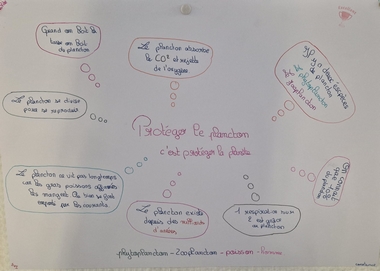 Quand on boit la
tasse on boit
du plancton
Le plancton absorbe
le CO² et rejette
de l'oxygène
Il y a deux espèces
de plancton
Le phytoplancton
Le zooplancton
Le plancton se divise
pour se reproduire
Protéger le plancton
c'est protéger la planète
Le plancton ne vit pas longtemps
car les gros poissons
les mangent
par les courants
Le plancton existe
depuis des milliards
d'années
1 respiration sur
2 est grâce
au plancton
On connait
que
du plancton
phytoplancton - Zooplancton - poisson - Homme